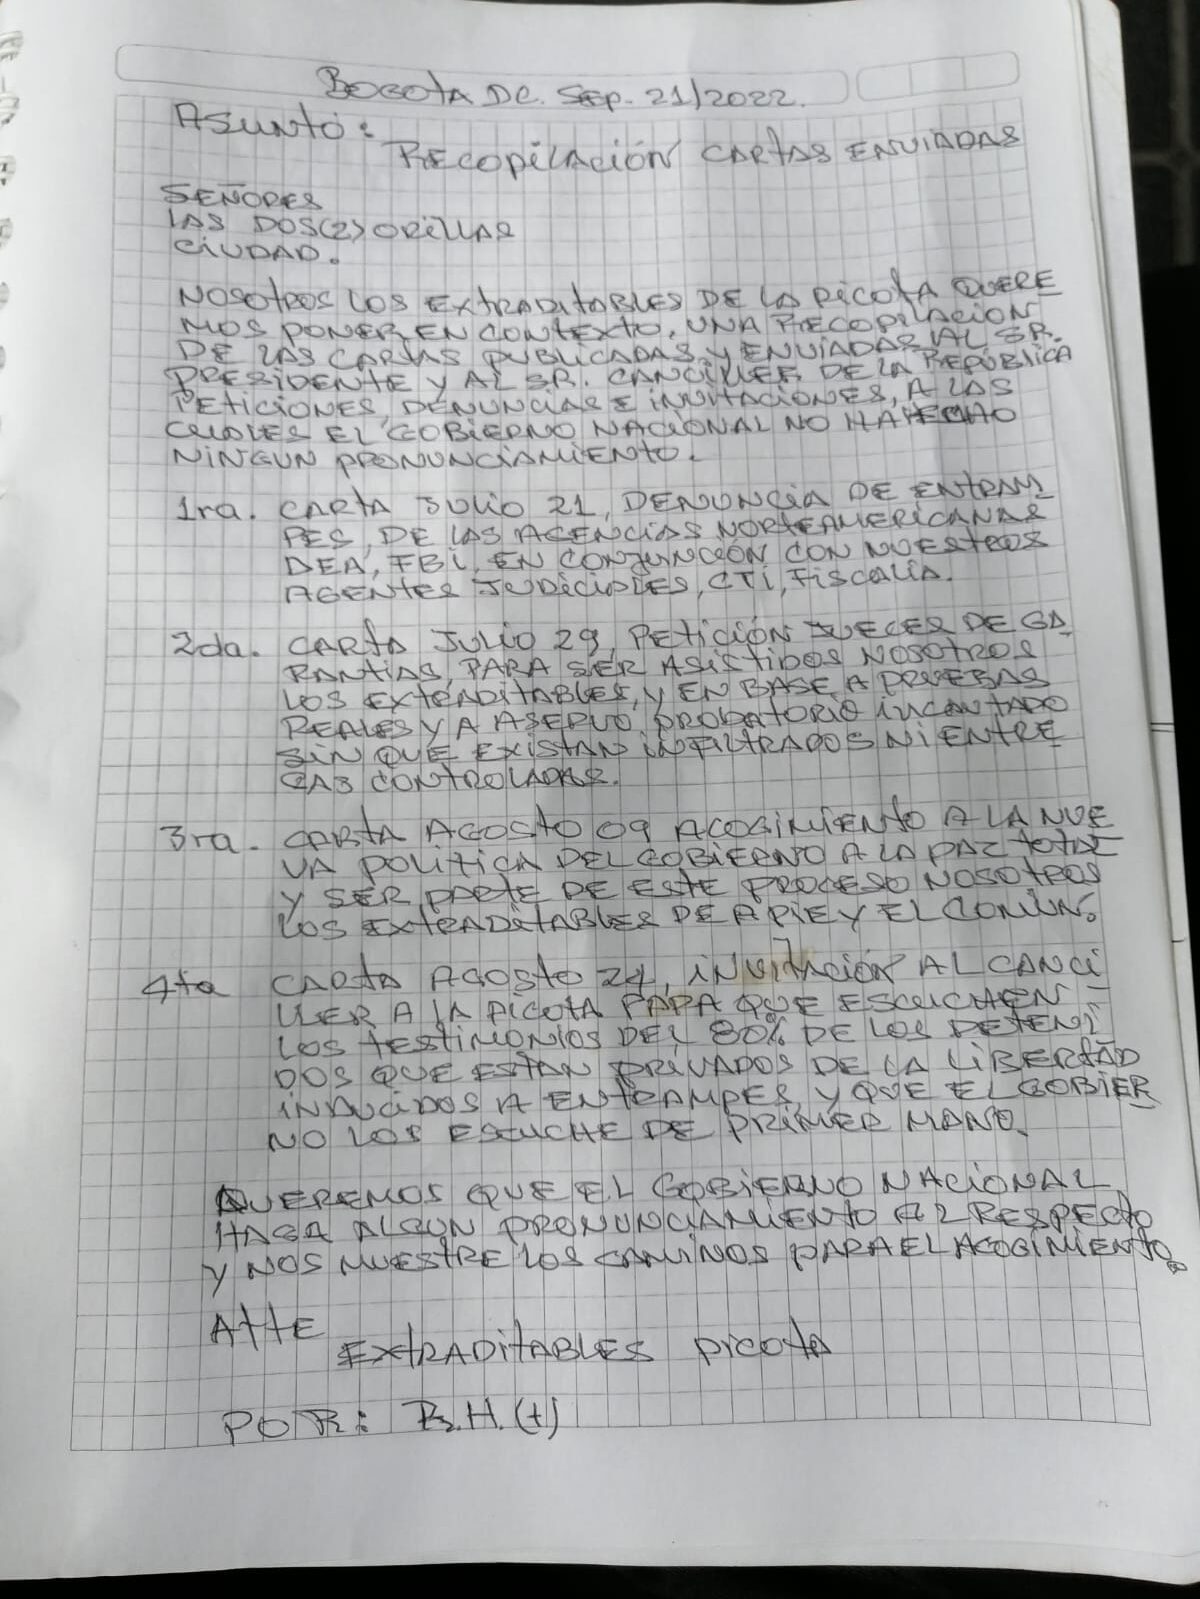 BOGOTA DC. SEP. 21/2022.
ASUNTO:
RECOPILACIÓN CARTAS ENVIADAS
SEÑORES
LAS DOS(2) ORILLAS
CIUDAD.
NOSOTROS LOS EXTRADITABLES DE LA PICOTA QUERE
MOS PONER EN CONTEXTO, UNA RECOPILACION
DE LAS CARTAS PUBLICADAS Y ENVIADAS AL SR.
PRESIDENTE Y AL SR. CANCILLER DE LA REPÚBLICA
PETICIONES, DENUNCIAS E INVITACIONES, A LAS
CUALES EL GOBIERNO NACIONAL NO HA HECHO
NINGUN PRONUNCIAMIENTO.
1ra. CARTA JULIO 21, DENUNCIA DE ENTRAM
PES, DE LAS AGENCIAS NORTEAMERICANAS
DEA, FBI, EN CONJUNCIÓN CON NUESTROS
AGENTES JUDICIALES, CTI, FISCALIA.
2da. CARTA JULIO 29, PETICIÓN JUECES DE GA
RANTIAS, PARA SER ASISTIDOS NOSOTROS
LOS EXTRADITABLES, Y EN BASE A PRUEBAS
REALES Y A ASERVO PROBATORIO INCANTADO
SIN QUE EXISTAN INFILTRADOS NI ENTRE
GAS CONTROLADAS.
3ra. CARTA AGOSTO 09 ACOGIMIENTO A LA NUE
VA POLITICA DEL GOBIERNO A LA PAZ TOTAL
Y SER PARTE DE ESTE PROCESO NOSOTROS
LOS EXTRADITABLES DE A PIE Y EL COMUN.
4ta CARTA AGOSTO 24, INVITACIÓN AL CANCI
LLER A LA PICOTA PARA QUE ESCUCHEN
LOS TESTIMONIOS DEL 80% DE LOS DETENI
DOS QUE ESTAN PRIVADOS DE LA LIBERTAD
INDUCIDOS A ENTRAMPES, Y QUE EL GOBIER
NO LOS ESCUCHE DE PRIMER MANO.
QUEREMOS QUE EL GOBIERNO NACIONAL
HAGA ALGUN PRONUNCIAMIENTO AL RESPECTO
Y NOS MUESTRE LOS CAMINOS PARA EL ACOGIMIENTO.
ATTE
EXTRADITABLES PICOTA
POR: R.H.(+)